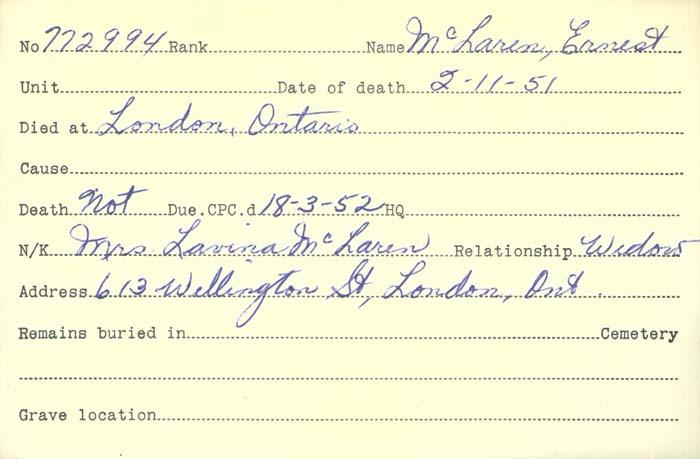 No 772994 Rank Name McLaren, Ernest
Unit Date of death 2-11-51
Died at London, Ontario
Cause
Death Not Due.CPC.d 18-3-52 HQ
N/K Mrs Lavina McLaren Relationship Widow
Address 613 Wellington St, London, Ont.
Remains buried in Cemetery
Grave location